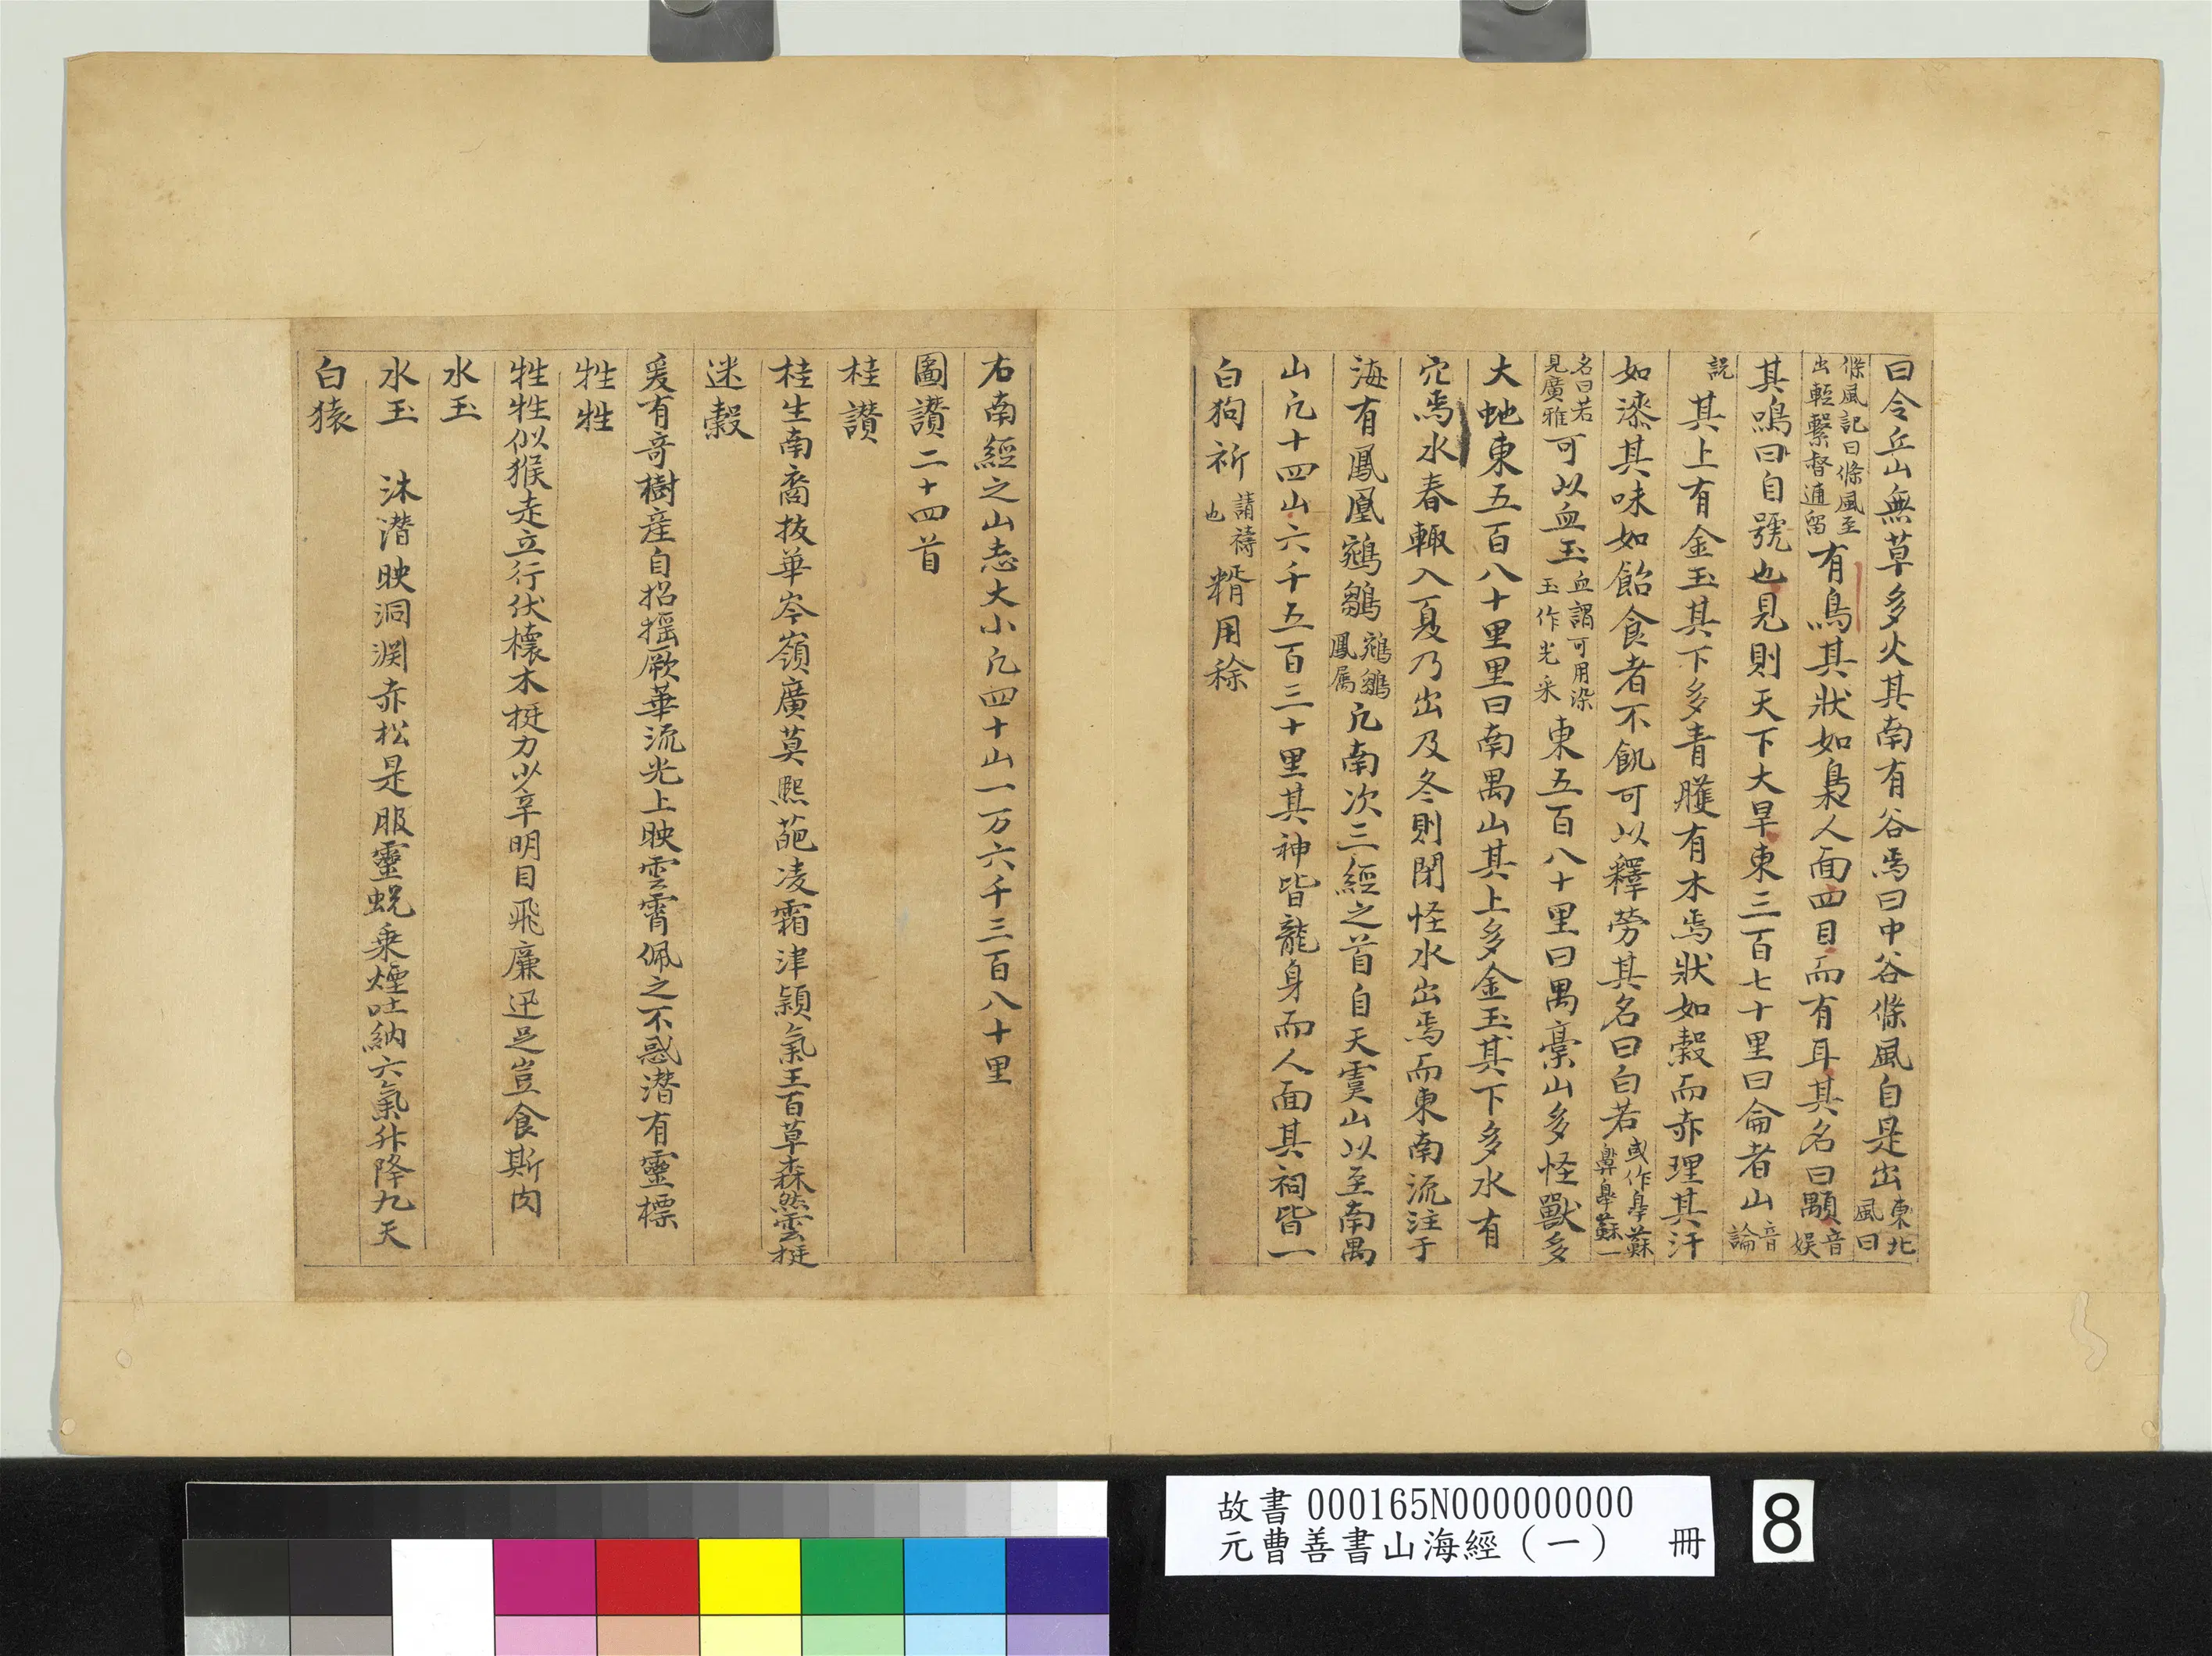 曰令丘山無草多火其南有谷焉曰中谷條風自是出東北風曰
條風記曰條風至出輕繫督逋留有鳥其狀如梟人面四目而有耳其名曰顒音娛
其鳴曰自號也見則天下大旱東三百七十里曰侖者山音論
説其上有金玉其下多青雘有木焉狀如榖而赤理其汗
如漆其味如飴食者不飢可以釋勞其名曰白若或作睾蘇睾蘇一
名曰若見廣雅可以血玉血謂可用染玉作光采東五百八十里曰禺稾山多怪獸多
大虵東五百八十里里曰南禺山其上多金玉其下多水有
穴焉水春輙入夏乃出及冬則閉怪水出焉而東南流注于
海有鳳凰鵷鶵鵷鶵鳳属凢南次三經之首自天虞山以至南禺
山凢十四山六千五百三十里其神皆龍身而人面其祠皆一
白狗祈請禱也糈用稌
右南經之山志大小凢四十山一万六千三百八十里
圖讃二十四首
桂讃
桂生南裔抜華岑嶺廣莫熈葩凌霜津穎氣王百草森然雲挺
迷榖
爰有竒樹産自招揺厥華流光上映雲霄佩之不惑潜有靈標
狌狌
狌狌似猴走立行伏櫰木挺力少辛明目飛廉迅足豈食斯肉
水玉
水玉 沐潜映洞渊赤松是服靈蜕乗煙吐納六氣升降九天
白猿
故書 000165N000000000
元曹善書山海經（一） 冊
8